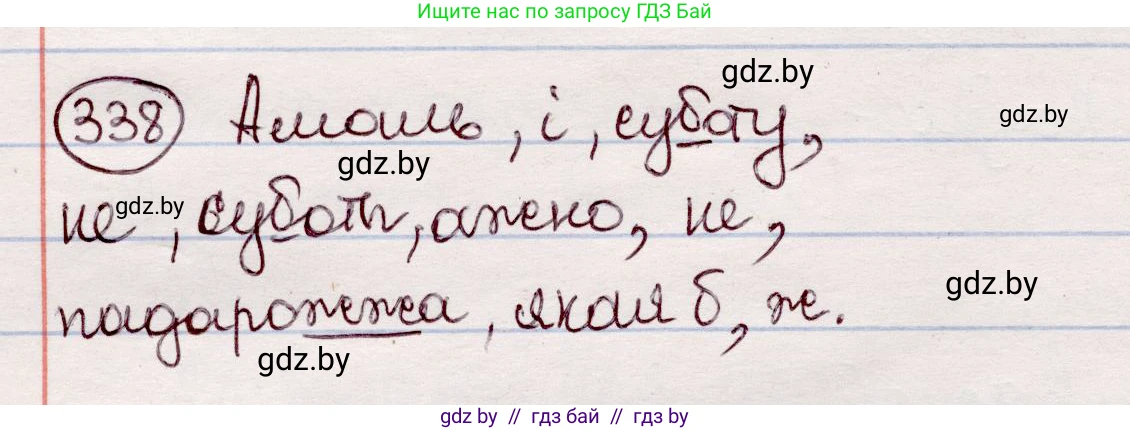 Ищите нас по запросу ГДЗ Бай
338 Амаль, і, суботу,
gdz.by
gdz.by
gdz.by
не, суботы, ажно, не,
gdz.by
падарожжа, якая б, ж.
gdz.by
gdz.by
gdz by // гдз бай // гдз by